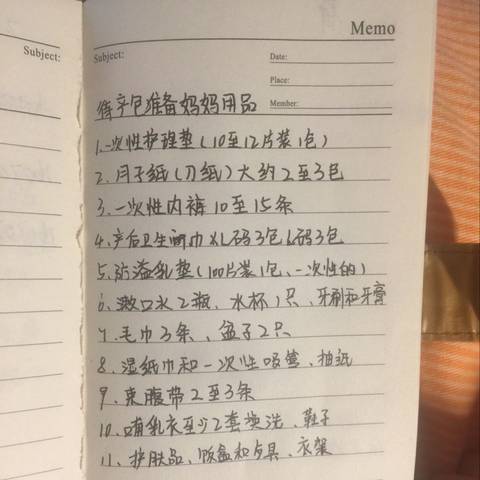 Memo
Subject:
Subject:
Date:
Place:
Member:
待产包准备妈妈用品
1.一次性护理垫(10至12片装1包)
2.月子纸(刀纸)大约2至3包
3.一次性内裤10至15条
4.产后卫生间巾XL码3包L码3包
5.防溢乳垫(100片装1包、一次性的)
6.漱口水2瓶、水杯1只、牙刷和牙膏
7.毛巾3条、盆子2只
8.湿纸巾和一次性吸管、抽纸
9.束腹带2至3条
10.哺乳衣至少2套换洗、鞋子
11.护肤品、饭盒和勺具、衣架